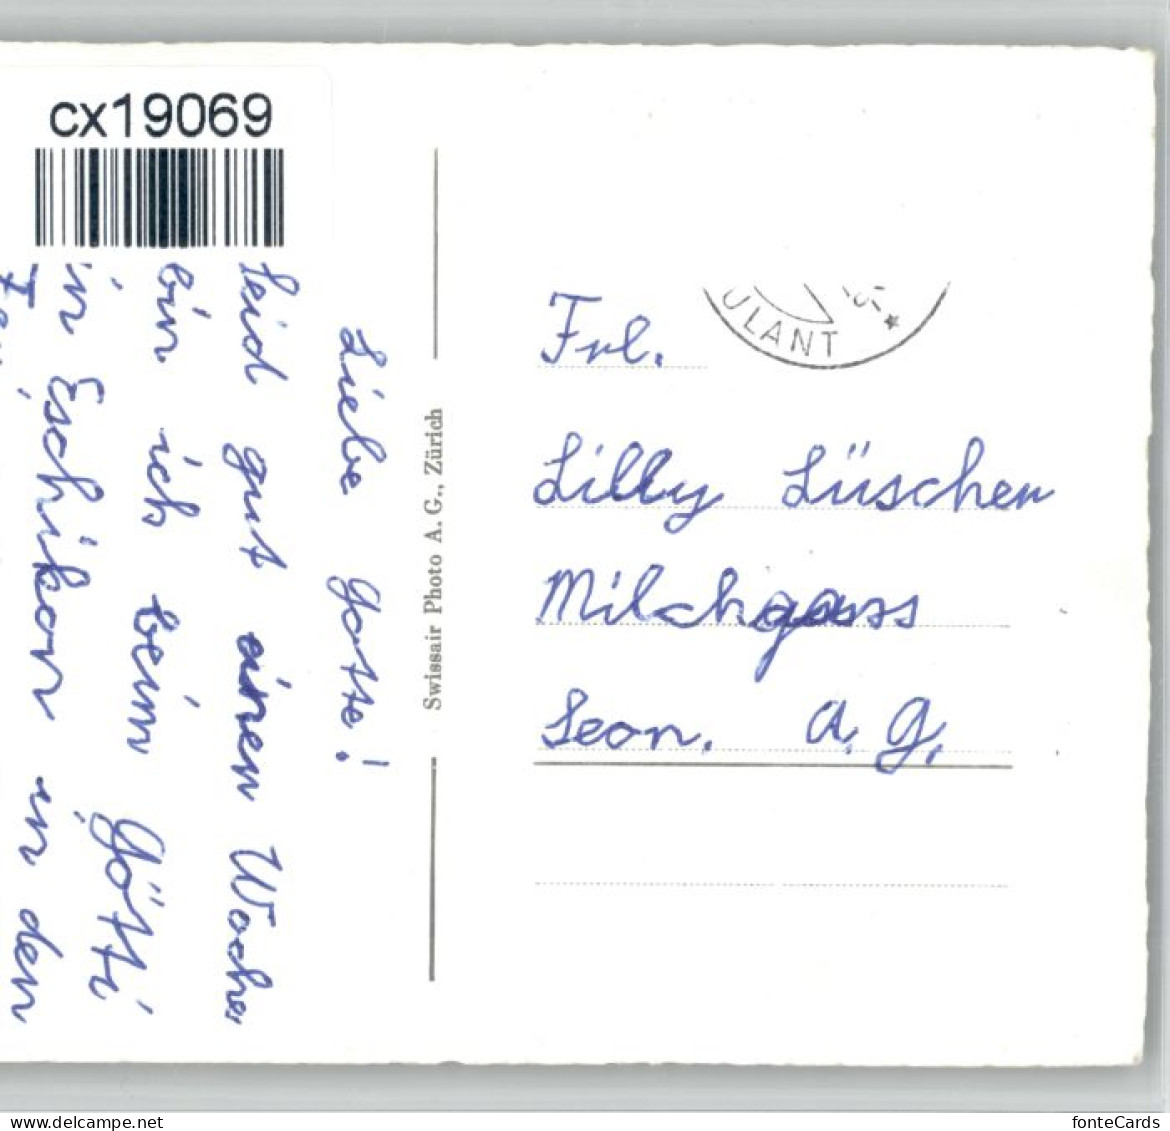 cx19069
Liebe Gotte!
Seid gut einen Woche
bin ich beim Götti
in Eschikon in den
Swissair Photo A. G., Zürich
ULANT
Frl.
Lilly Lüscher
Milchgass
Seon. A. G.
www.delcampe.net
fonteCards